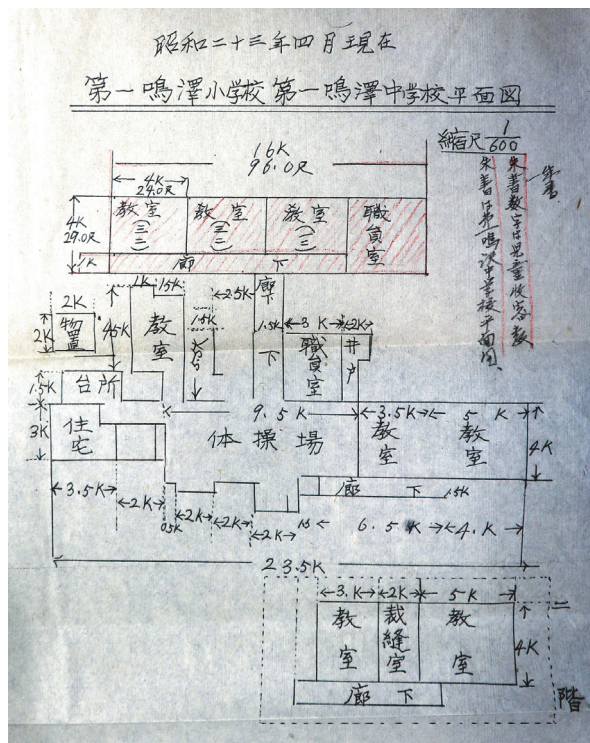 昭和二十三年四月現在
第一鳴澤小学校 第一鳴澤中学校平面図
縮尺 1/600
朱書
朱書数字は児童収容数
朱書は第一鳴沢中学校平面図、
16K
96.0尺
4K
24.0尺
4K
29.0尺
1K
教室
(三)
教室
(三)
教室
(三)
職員室
廊下
2K
2K
物置
4.5K
1K
1.5K
教室
1.5K
2.5K
廊下
1.5K
3K
2K
職員室
井戸
1.5K
台所
3K
住宅
9.5K
体操場
3.5K
5K
教室
教室
4K
廊下
1.5K
3.5K
2K
0.5K
2K
2K
2K
1.5
6.5K
4.K
23.5K
3.K
2K
5K
教室
裁縫室
教室
4K
廊下
二階